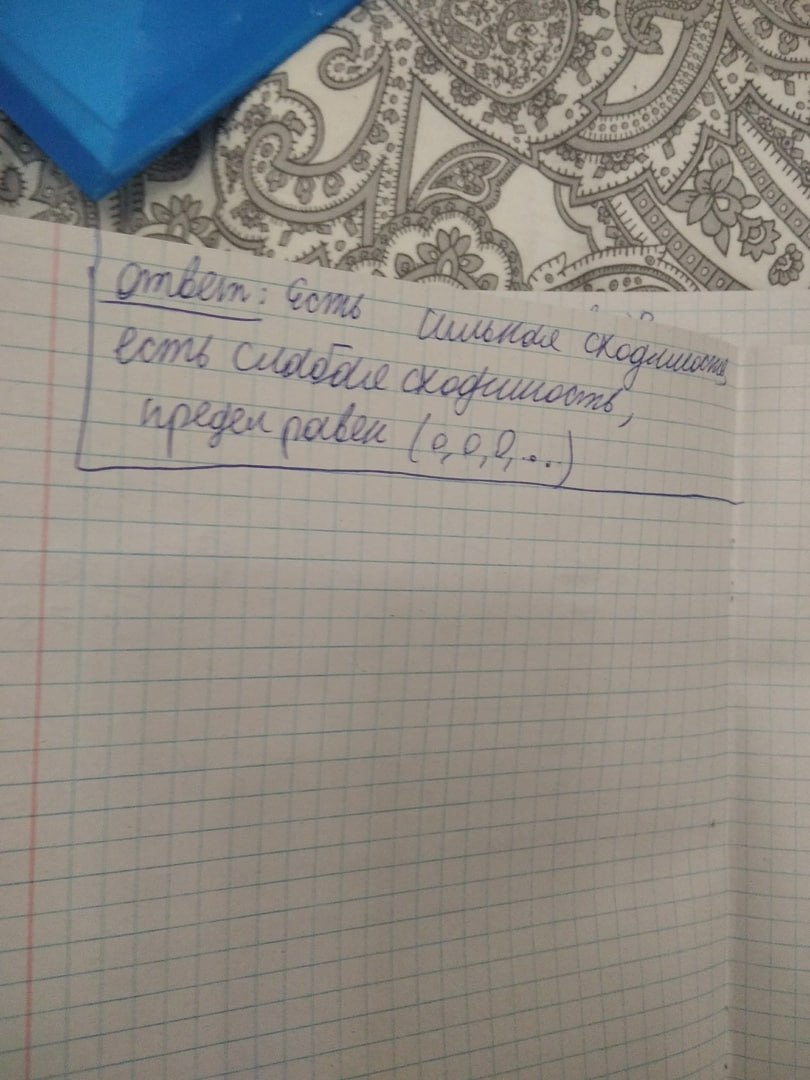 Ответ: Есть сильная сходимость,
есть слабая сходимость,
предел равен (0,0,0,...)